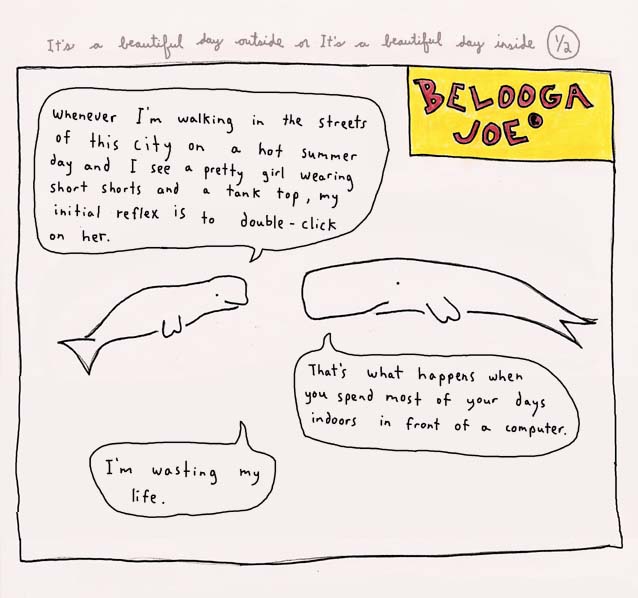 It's a beautiful day outside or It's a beautiful day inside 1/2
BELOOGA
JOE
Whenever I'm walking in the streets
of this city on a hot summer
day and I see a pretty girl wearing
short shorts and a tank top, my
initial reflex is to double-click
on her.
That's what happens when
you spend most of your days
indoors in front of a computer.
I'm wasting my
life.